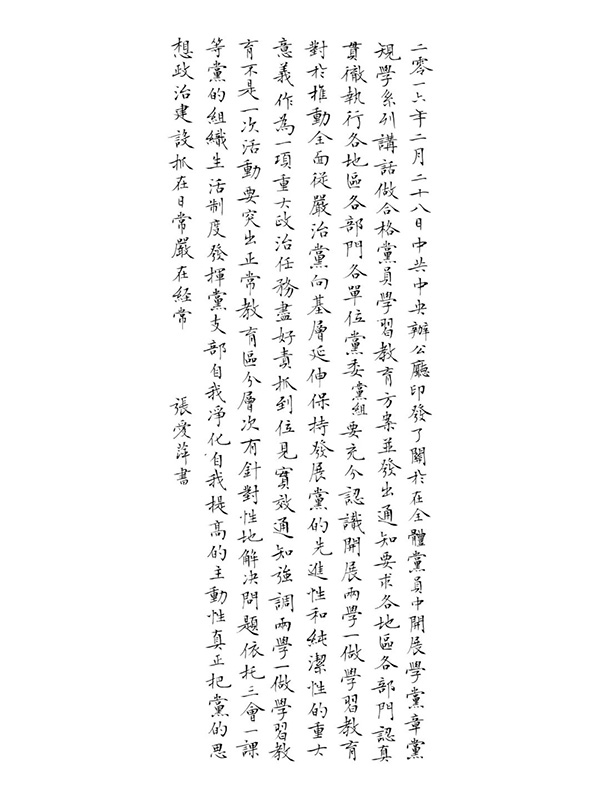 二零一六年二月二十八日中共中央辦公廳印發了關於在全體黨員中開展學黨章黨
規學系列講話做合格黨員學習教育方案並發出通知要求各地區各部門認真
貫徹執行各地區各部門各單位黨委黨組要充分認識開展兩學一做學習教育
對於推動全面從嚴治黨向基層延伸保持發展黨的先進性和純潔性的重大
意義作為一項重大政治任務盡好責抓到位見實效通知強調兩學一做學習教
育不是一次活動要突出正常教育區分層次有針對性地解決問題依托三會一課
等黨的組織生活制度發揮黨支部自我淨化自我提高的主動性真正把黨的思
想政治建設抓在日常嚴在經常
張愛萍書